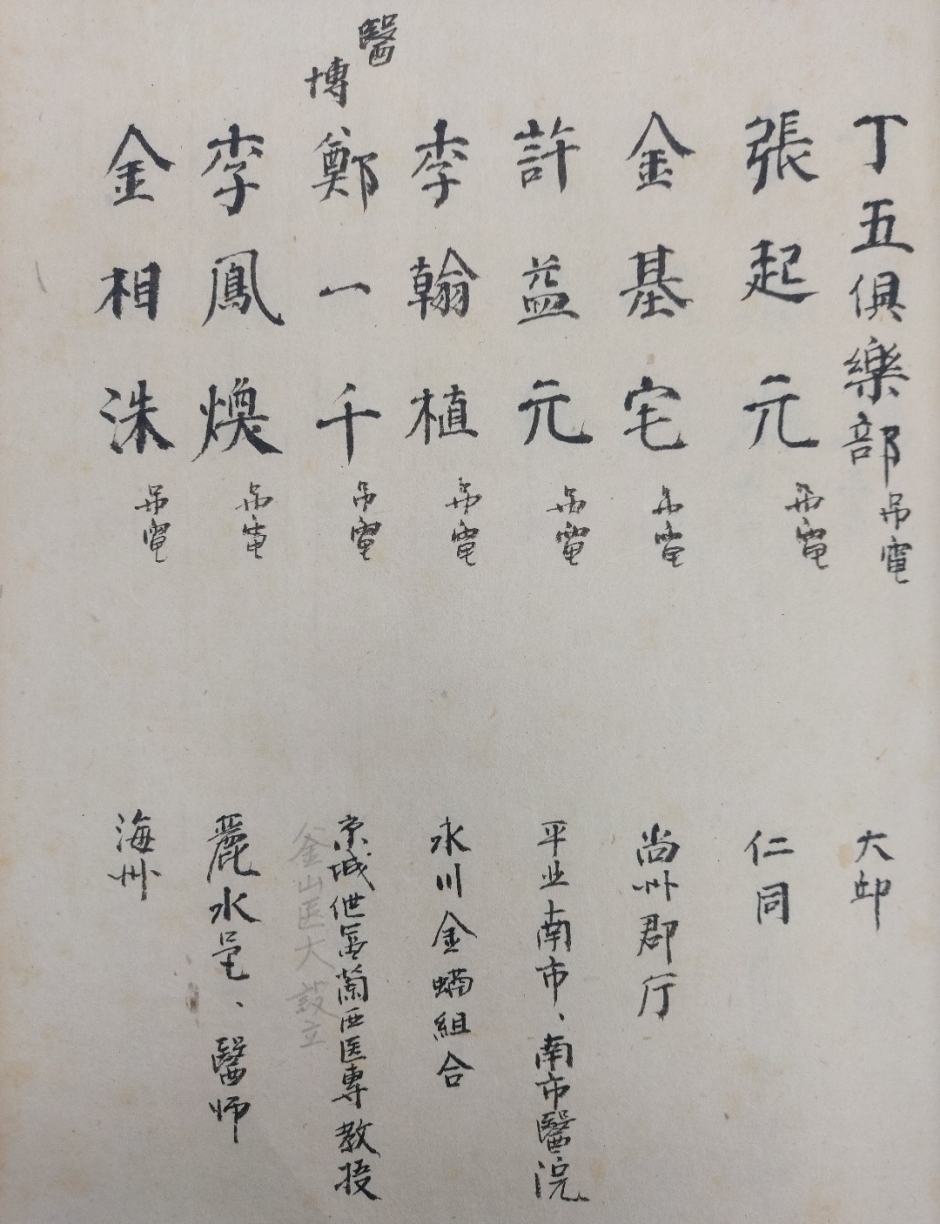 丁五俱樂部 吊電 大邱
張起元 吊電 仁同
金基宅 吊電 尚州郡厅
許益元 吊電 平北南市、南市醫院
李翰植 吊電 永川金融組合
醫博 鄭一千 吊電 京城世富蘭西医專教授
釜山医大 設立
李鳳煥 吊電 麗水邑、醫师
金相洙 吊電 海州